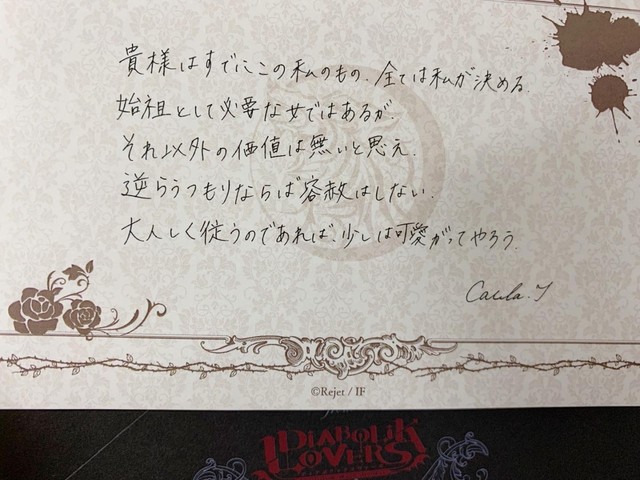 貴様はすでにこの私のもの. 全ては私が決める.
始祖として必要な女ではあるが.
それ以外の価値は無いと思え.
逆らうつもりならば容赦はしない.
大人しく従うのであれば、少しは可愛がってやろう.
Carla.T
©Rejet / IF
DIABOLIK
LOVERS